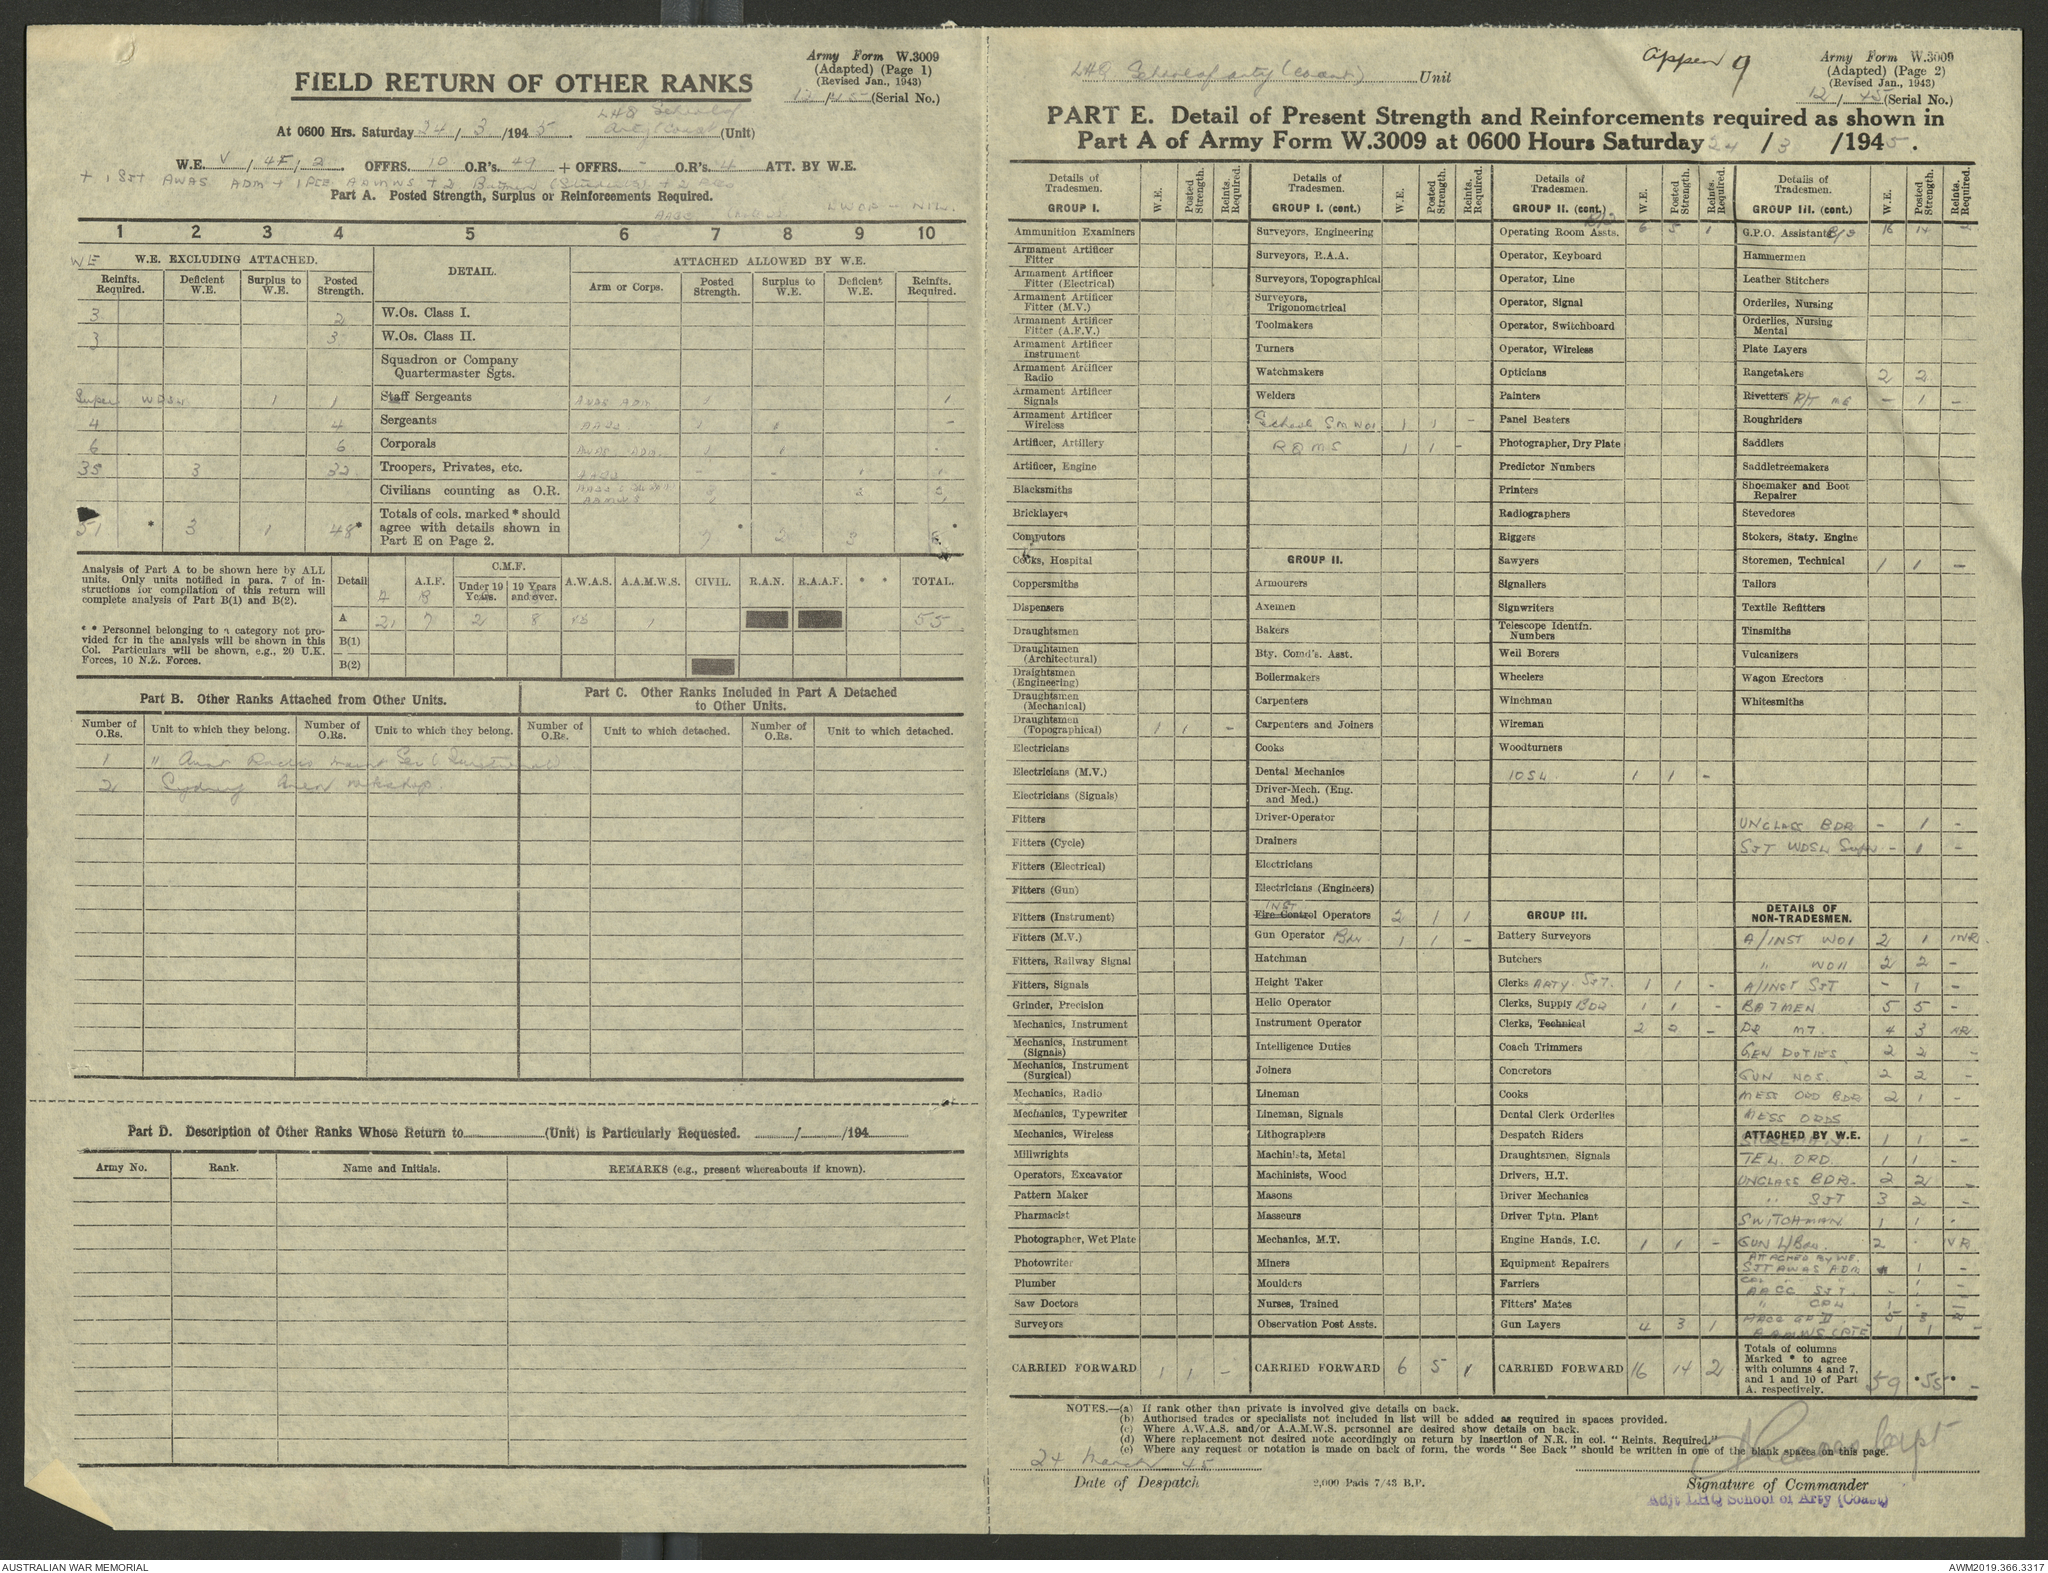 Army Form W.3009
(Adapted) (Page 1)
(Revised Jan., 1943)
12/45 (Serial No.)
FIELD RETURN OF OTHER RANKS
LHQ School of
At 0600 Hrs. Saturday 24/3/1945. Arty (Coast) (Unit)
W.E. V/4F/2. OFFRS. 10 O.R's. 49 + OFFRS. - O.R's. 4 ATT. BY W.E.
+ 1 SJT AWAS ADM + 1 PTE AAMWS + 2 Batmen
Part A. Posted Strength, Surplus or Reinforcements Required.
1 2 3 4 5 6 7 8 9 10
WE W.E. EXCLUDING ATTACHED. DETAIL. ATTACHED ALLOWED BY W.E.
Reinfts. Required. Deficient W.E. Surplus to W.E. Posted Strength. Arm or Corps. Posted Strength. Surplus to W.E. Deficient W.E. Reinfts. Required.
3 2 W.Os. Class I.
3 3 W.Os. Class II.
Squadron or Company
Quartermaster Sgts.
Super WDSN 1 1 Staff Sergeants AWAS ADM 1 1
4 4 Sergeants AACC 1 1 -
6 6 Corporals AWAS ADM 1 1
35 3 32 Troopers, Privates, etc. AACC - - 1 1
Civilians counting as O.R. AAMWS
51 * 3 1 48* Totals of cols. marked * should
agree with details shown in
Part E on Page 2. 7 * 2 3 6 *
Analysis of Part A to be shown here by ALL
units. Only units notified in para. 7 of in-
structions for compilation of this return will
complete analysis of Part B(1) and B(2).
* * Personnel belonging to a category not pro-
vided for in the analysis will be shown in this
Col. Particulars will be shown, e.g., 20 U.K.
Forces, 10 N.Z. Forces.
Detail A.I.F. C.M.F. Under 19 Years. 19 Years and over. A.W.A.S. A.A.M.W.S. CIVIL. R.A.N. R.A.A.F. * * TOTAL.
A 21 7 2 8 1 55
B(1)
B(2)
Part B. Other Ranks Attached from Other Units.
Part C. Other Ranks Included in Part A Detached
to Other Units.
Number of O.Rs. Unit to which they belong. Number of O.Rs. Unit to which they belong. Number of O.Rs. Unit to which detached. Number of O.Rs. Unit to which detached.
1 " Aust Radio Maint Sec
2 Sydney Area Wkshop
Part D. Description of Other Ranks Whose Return to (Unit) is Particularly Requested. / /194
Army No. Rank. Name and Initials. REMARKS (e.g., present whereabouts if known).
LHQ School of Arty (Coast) Unit
Appen 9
Army Form W.3009
(Adapted) (Page 2)
(Revised Jan., 1943)
12/45 (Serial No.)
PART E. Detail of Present Strength and Reinforcements required as shown in
Part A of Army Form W.3009 at 0600 Hours Saturday 24/3/1945.
Details of Tradesmen. W.E. Posted Strength. Reinfts. Required.
GROUP I.
Ammunition Examiners
Armament Artificer Fitter
Armament Artificer Fitter (Electrical)
Armament Artificer Fitter (M.V.)
Armament Artificer Fitter (A.F.V.)
Armament Artificer Instrument
Armament Artificer Radio
Armament Artificer Signals
Armament Artificer Wireless
Artificer, Artillery
Artificer, Engine
Blacksmiths
Bricklayers
Computors
Cooks, Hospital
Coppersmiths
Dispensers
Draughtsmen
Draughtsmen (Architectural)
Draughtsmen (Engineering)
Draughtsmen (Mechanical)
Draughtsmen (Topographical) 1 1 -
Electricians
Electricians (M.V.)
Electricians (Signals)
Fitters
Fitters (Cycle)
Fitters (Electrical)
Fitters (Gun)
Fitters (Instrument)
Fitters (M.V.)
Fitters, Railway Signal
Fitters, Signals
Grinder, Precision
Mechanics, Instrument
Mechanics, Instrument (Signals)
Mechanics, Instrument (Surgical)
Mechanics, Radio
Mechanics, Typewriter
Mechanics, Wireless
Millwrights
Operators, Excavator
Pattern Maker
Pharmacist
Photographer, Wet Plate
Photowriter
Plumber
Saw Doctors
Surveyors
CARRIED FORWARD 1 1 -
Details of Tradesmen. W.E. Posted Strength. Reinfts. Required.
GROUP I. (cont.)
Surveyors, Engineering
Surveyors, R.A.A.
Surveyors, Topographical
Surveyors, Trigonometrical
Toolmakers
Turners
Watchmakers
Welders
School SM WO1 1 1 -
RQMS 1 1 -
GROUP II.
Armourers
Axemen
Bakers
Bty. Comd's. Asst.
Boilermakers
Carpenters
Carpenters and Joiners
Cooks
Dental Mechanics
Driver-Mech. (Eng. and Med.)
Driver-Operator
Drainers
Electricians
Electricians (Engineers)
INST
Fire Control Operators 2 1 1
Gun Operator Bdr 1 1 -
Hatchman
Height Taker
Helio Operator
Instrument Operator
Intelligence Duties
Joiners
Lineman
Lineman, Signals
Lithographers
Machinists, Metal
Machinists, Wood
Masons
Masseurs
Mechanics, M.T.
Miners
Moulders
Nurses, Trained
Observation Post Assts.
CARRIED FORWARD 6 5 1
Details of Tradesmen. W.E. Posted Strength. Reinfts. Required.
GROUP II. (cont.) B/D
Operating Room Assts. 6 5 1
Operator, Keyboard
Operator, Line
Operator, Signal
Operator, Switchboard
Operator, Wireless
Opticians
Painters
Panel Beaters
Photographer, Dry Plate
Predictor Numbers
Printers
Radiographers
Riggers
Sawyers
Signallers
Signwriters
Telescope Identfn. Numbers
Well Borers
Wheelers
Winchman
Wireman
Woodturners
1 1 -
GROUP III.
Battery Surveyors
Butchers
Clerks ARTY. SJT. 1 1 -
Clerks, Supply BDR 1 1 -
Clerks, Technical 2 2 -
Coach Trimmers
Concretors
Cooks
Dental Clerk Orderlies
Despatch Riders
Draughtsmen, Signals
Drivers, H.T.
Driver Mechanics
Driver Tptn. Plant
Engine Hands, I.C. 1 1 -
Equipment Repairers
Farriers
Fitters' Mates
Gun Layers 4 3 1
CARRIED FORWARD 16 14 2
Details of Tradesmen. W.E. Posted Strength. Reinfts. Required.
GROUP III. (cont.)
G.P.O. Assistants 16 14 2
Hammermen
Leather Stitchers
Orderlies, Nursing
Orderlies, Nursing Mental
Plate Layers
Rangetakers 2 2
Rivetters R/T MG - 1 -
Roughriders
Saddlers
Saddletreemakers
Shoemaker and Boot Repairer
Stevedores
Stokers, Staty. Engine
Storemen, Technical 1 1 -
Tailors
Textile Refitters
Tinsmiths
Vulcanizers
Wagon Erectors
Whitesmiths
UNCLASS BDR - 1 -
SJT WDSN Super - 1 -
DETAILS OF NON-TRADESMEN.
A/INST WO1 2 1 1NR
" WO11 2 2 -
A/INST SJT - 1 -
BATMEN 5 5 -
DR MT. 4 3 NR
GEN DUTIES 2 2 -
GUN NOS. 2 2 -
MESS ORD BDR 2 1 -
MESS ORDS
ATTACHED BY W.E.
STOREMAN 1 1 -
TEL. ORD. 1 1 -
UNCLASS BDR- 2 2 -
" SJT 3 2 -
SWITCHMAN 1 1 -
GUN L/Bdr. 2 - NR
ATTACHED BY WE.
SJT AWAS ADM 1 -
CPL " " 1 -
AACC SJT. - 1 -
" CPL 1 - -
AACC GP II 5 3 2
AAMWS (PTE) 1 1 -
Totals of columns
Marked * to agree
with columns 4 and 7,
and 1 and 10 of Part
A. respectively. 59 *55* -
NOTES.—(a) If rank other than private is involved give details on back.
(b) Authorised trades or specialists not included in list will be added as required in spaces provided.
(c) Where A.W.A.S. and/or A.A.M.W.S. personnel are desired show details on back.
(d) Where replacement not desired note accordingly on return by insertion of N.R. in col. "Reinfs. Required."
(e) Where any request or notation is made on back of form, the words "See Back" should be written in one of the blank spaces on this page.
24 March 45
Date of Despatch
2,000 Pads 7/43 B.P.
Capt
Signature of Commander
Adjt LHQ School of Arty (Coast)
AUSTRALIAN WAR MEMORIAL
AWM2019.366.3317